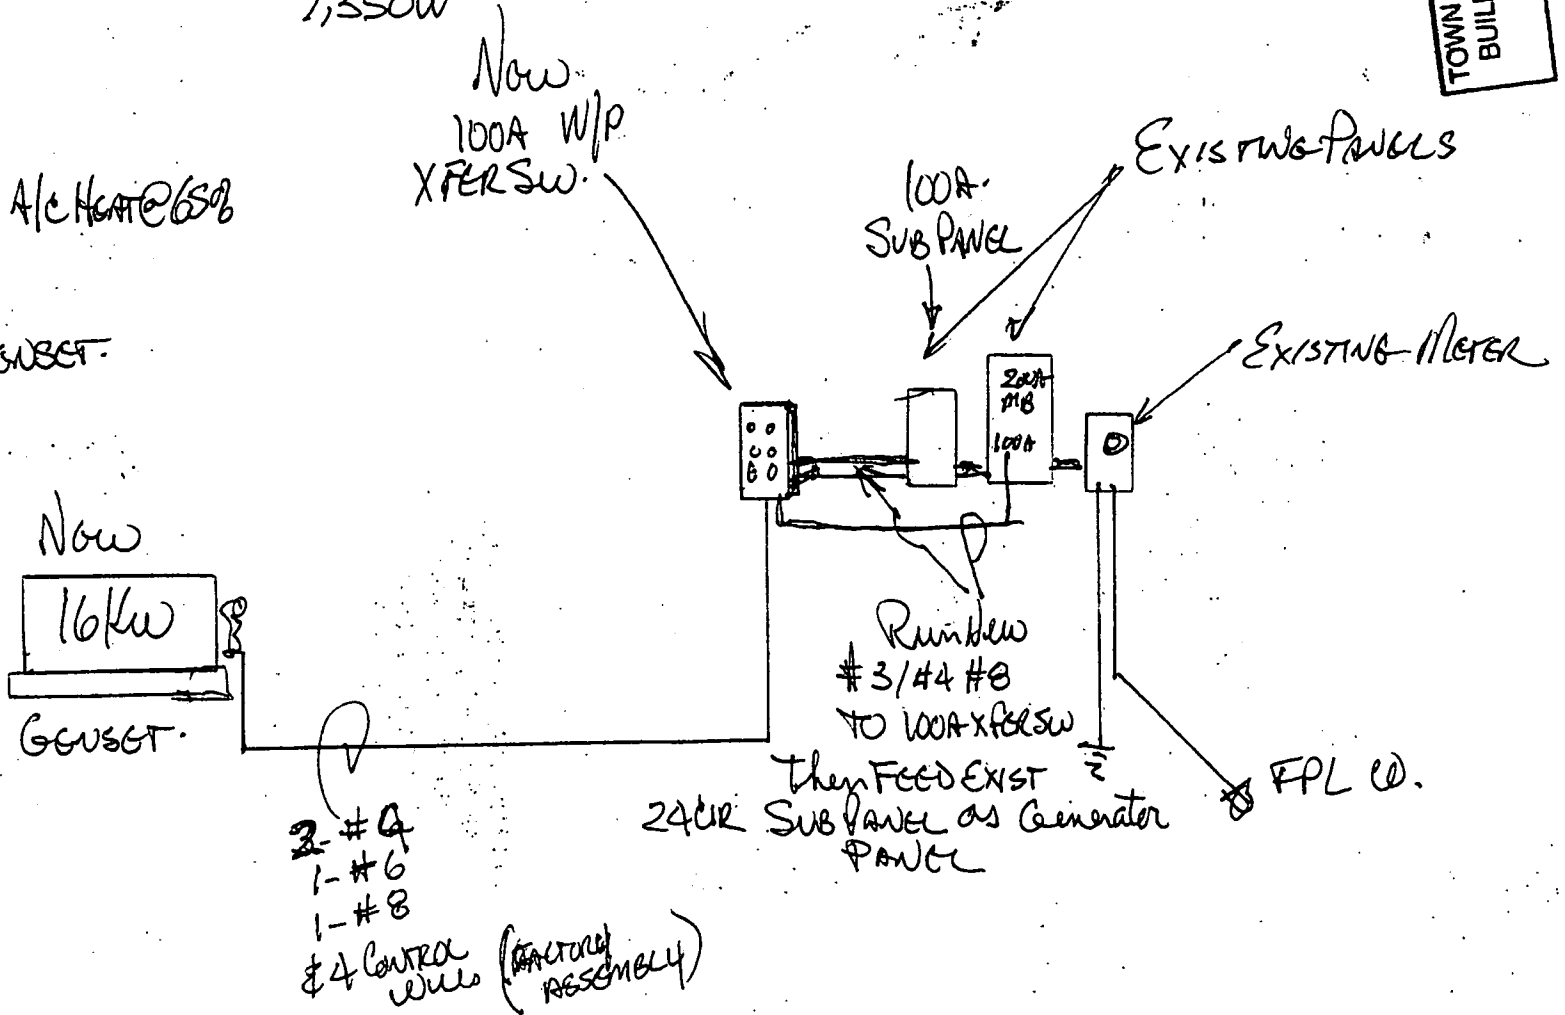 TOWN
BUIL
New
100A W/P
XFER SW.
A/C HEAT @ 65%
100A.
SUB PANEL
EXISTING PANELS
EXISTING METER
200A
MB
100A
New
16KW
GENSET.
Run New
#3/#4 #8
TO 100A XFER SW
Then FEED EXIST
24 CIR SUB PANEL as Generator
PANEL
FPL CO.
1-#6
1-#8
& 4 CONTROL
Wires (FACTORY
ASSEMBLY)